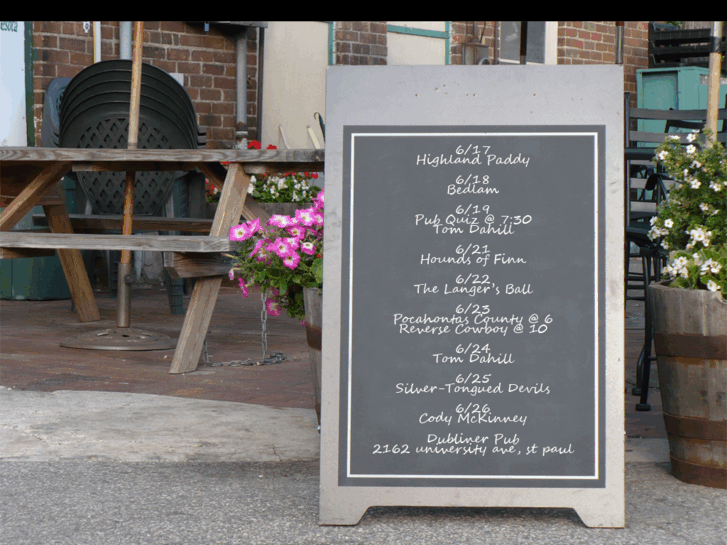 6/17
Highland Paddy
6/18
Bedlam
6/19
Pub Quiz @ 7:30
Tom Dahill
6/21
Hounds of Finn
6/22
The Langer's Ball
6/23
Pocahontas County @ 6
Reverse Cowboy @ 10
6/24
Tom Dahill
6/25
Silver-Tongued Devils
6/26
Cody McKinney
Dubliner Pub
2162 university ave, st paul